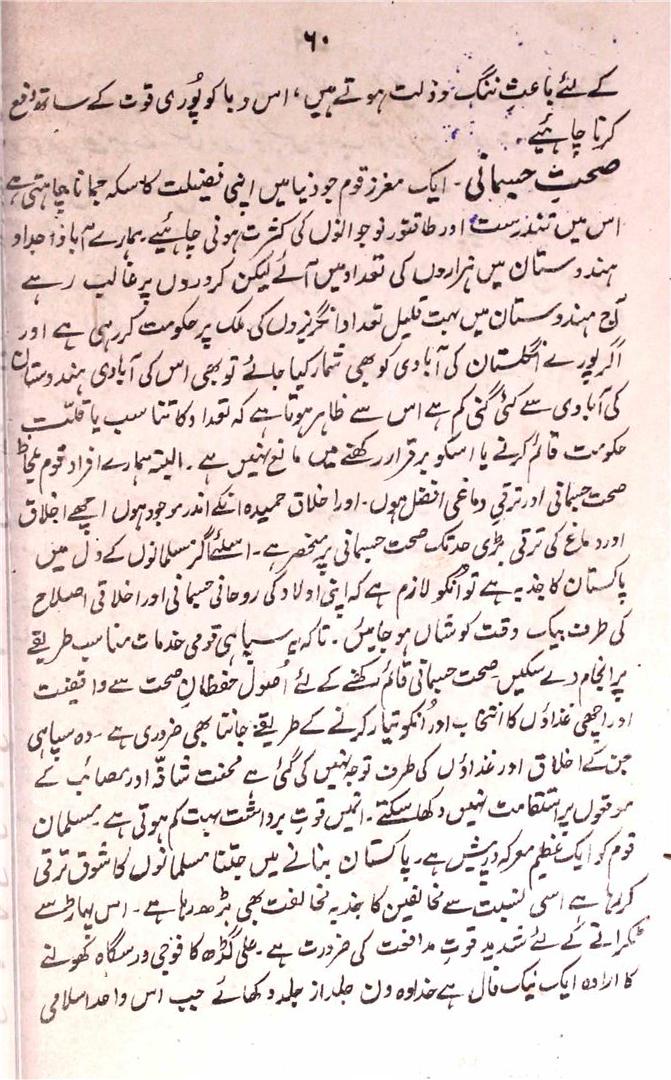 ۶۰
کے لئے باعث ننگ و ذلت ہوتے ہیں، اس وبا کو پُوری قوت کے ساتھ رفع
کرنا چاہئیے
صحتِ جسمانی - ایک معزز قوم جو دنیا میں اپنی فضیلت کا سکہ جمانا چاہتی ہے
اس میں تندرست اور طاقتور نوجوانوں کی کثرت ہونی چاہئیے ہمارے آباؤ اجداد
ہندوستان میں ہزاروں کی تعداد میں آئے لیکن کروروں پر غالب رہے
آج ہندوستان میں بہت قلیل تعداد انگریزوں کی ملک پر حکومت کررہی ہے اور
اگر پورے انگلستان کی آبادی کو بھی شمار کیا جائے تو بھی اس کی آبادی ہندوستان
کی آبادی سے کئی گنی کم ہے اس سے ظاہر ہوتا ہے کہ تعداد کا تناسب یا قلت
حکومت قائم کرنے یا اسکو برقرار رکھنے میں مانع نہیں ہے ۔ البتہ ہمارے افراد قوم بلحاظ
صحت جسمانی اور ترقی دماغی افضل ہوں ۔ اور اخلاق حمیدہ انکے اندر موجود ہوں اچھے اخلاق
اور دماغ کی ترقی بڑی حد تک صحت جسمانی پر منحصر ہے ۔ اسلئے اگر مسلمانوں کے دل میں
پاکستان کا جذبہ ہے تو انکو لازم ہے کہ اپنی اولاد کی روحانی جسمانی اور اخلاقی اصلاح
کی طرف بیک وقت کوشاں ہو جائیں ۔ تاکہ یہ سپاہی قومی خدمات مناسب طریقے
پر انجام دے سکیں صحت جسمانی قائم رکھنے کے لئے اُصول حفظانِ صحت سے واقفیت
اور اچھی غذاؤں کا انتخاب اور اُنکو تیار کرنے کے طریقے جاننا بھی ضروری ہے ۔ وہ سپاہی
جن کے اخلاق اور غذاؤں کی طرف توجہ نہیں کی گئی ہے محنت شاقہ اور مصائب کے
موقعوں پر استقامت نہیں دکھا سکتے ۔ انہیں قوتِ برداشت بہت کم ہوتی ہے ۔ مسلمان
قوم کو ایک عظیم معرکہ درپیش ہے ۔ پاکستان بنانے میں جتنا مسلمانوں کا شوق ترقی
کررہا ہے اسی نسبت سے مخالفین کا جذبہ مخالفت بھی بڑھ رہا ہے ۔ اس پہاڑ سے
ٹکرانے کے لئے شدید قوتِ مدافعت کی ضرورت ہے ۔ علی گڑھ کا فوجی درسگاہ کھولنے
کا ارادہ ایک نیک فال ہے خدا وہ دن جلد از جلد دکھائے جب اس واحد اسلامی